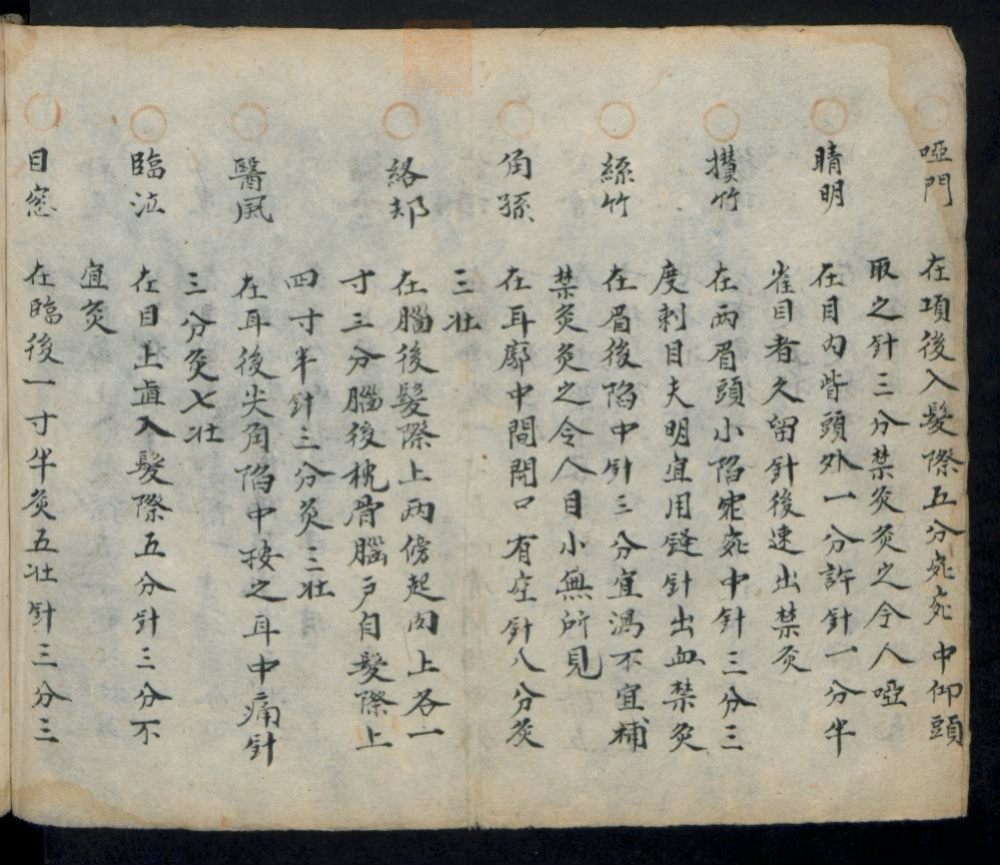 啞門 在項後入髮際五分宛宛中仰頭
取之針三分禁灸灸之令人啞
睛明 在目内眥頭外一分許針一分半
雀目者久留針後速出禁灸
攅竹 在兩眉頭小陷宛宛中針三分三
度刺目大明宜用鋒針出血禁灸
絲竹 在眉後陷中針三分宜瀉不宜補
禁灸灸之令人目小無所見
角孫 在耳廓中間開口有空針八分灸
三壯
絡却 在腦後髮際上兩傍起肉上各一
寸三分腦後枕骨腦戶自髮際上
四寸半針三分灸三壯
翳風 在耳後尖角陷中按之耳中痛針
三分灸七壯
臨泣 在目上直入髮際五分針三分不
宜灸
目窓 在臨後一寸半灸五壯針三分三